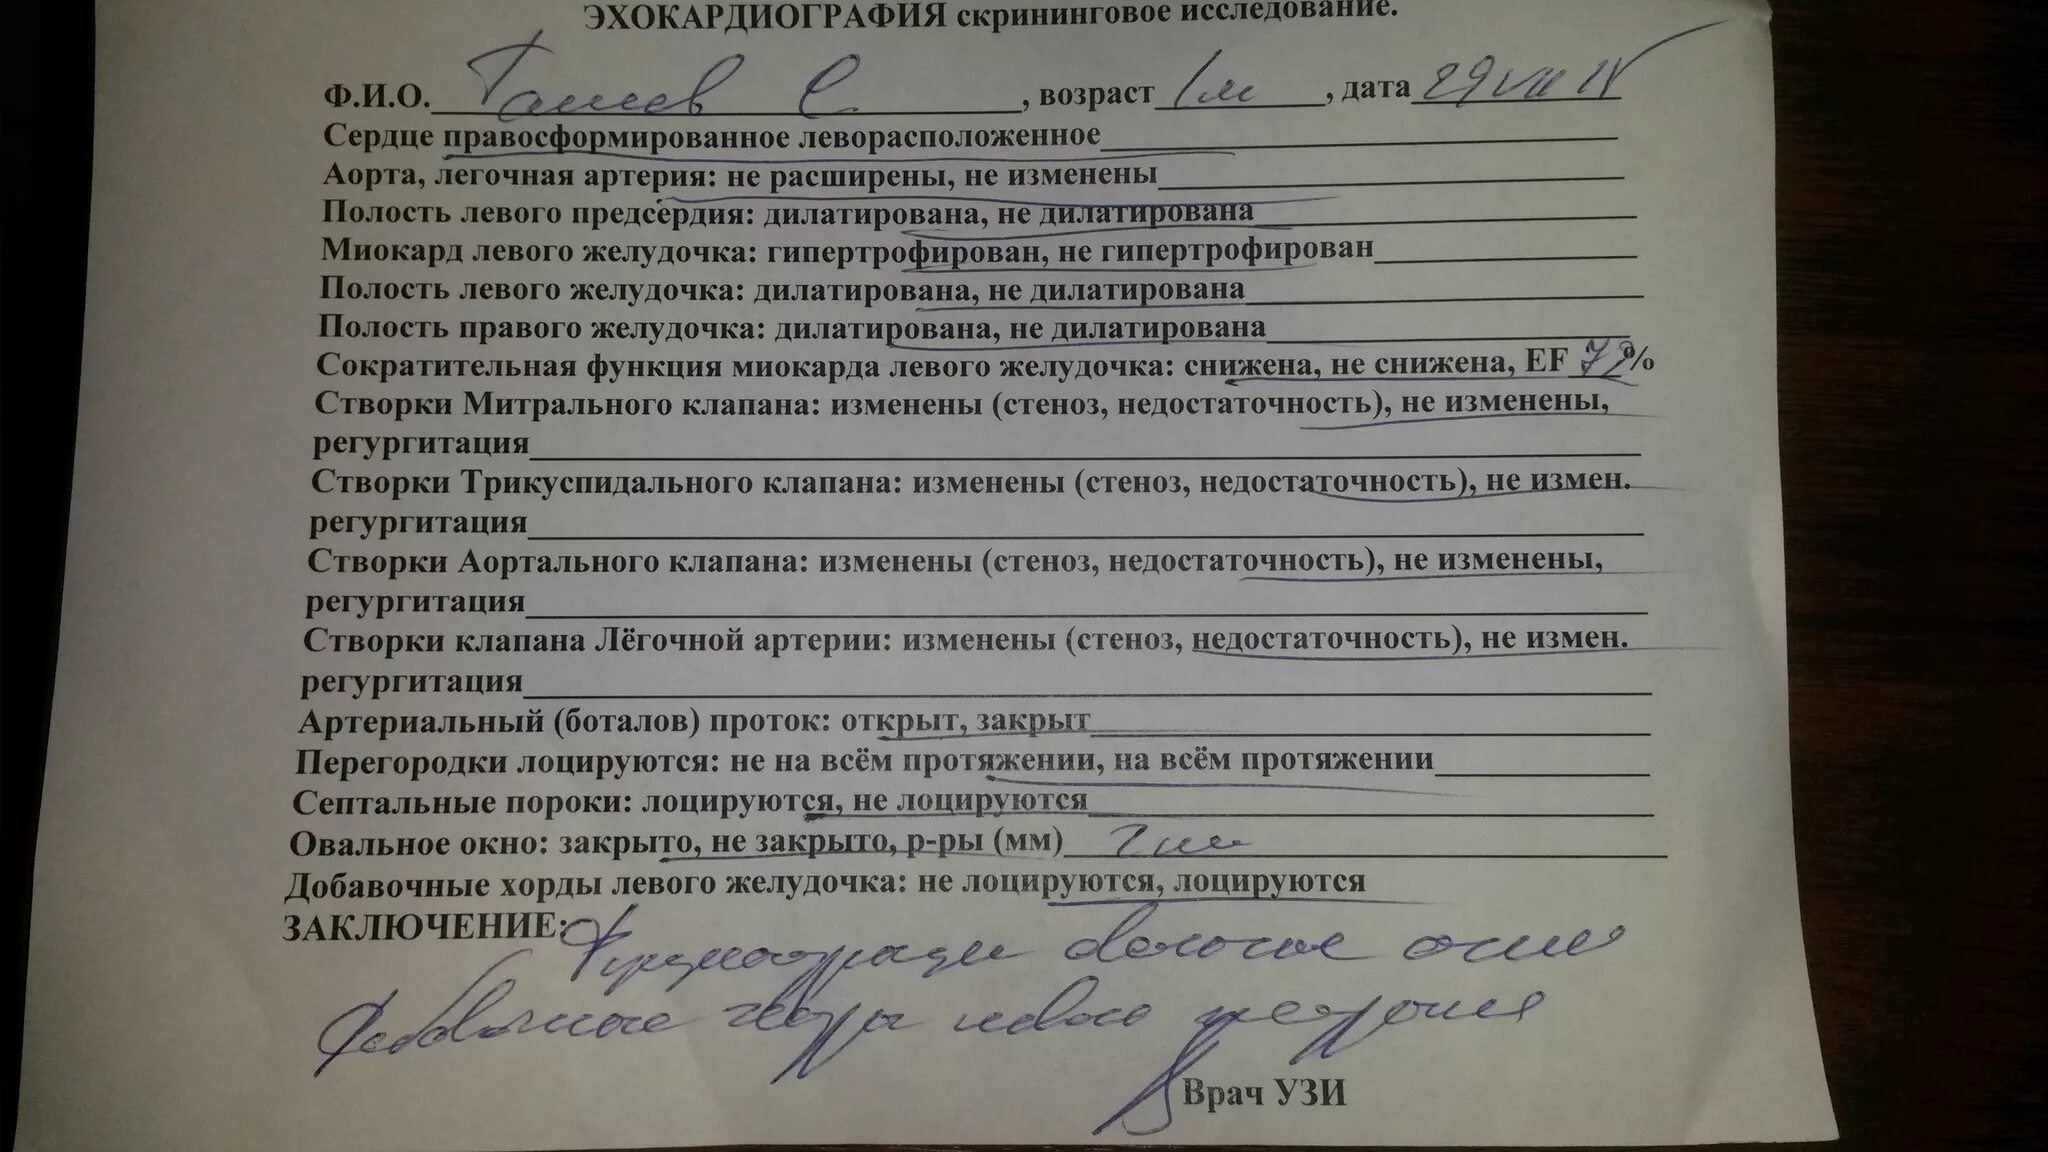 ЭХОКАРДИОГРАФИЯ скрининговое исследование.
Ф.И.О. С. , возраст 1м , дата 29 VII
Сердце правосформированное леворасположенное
Аорта, легочная артерия: не расширены, не изменены
Полость левого предсердия: дилатирована, не дилатирована
Миокард левого желудочка: гипертрофирован, не гипертрофирован
Полость левого желудочка: дилатирована, не дилатирована
Полость правого желудочка: дилатирована, не дилатирована
Сократительная функция миокарда левого желудочка: снижена, не снижена, EF %
Створки Митрального клапана: изменены (стеноз, недостаточность), не изменены,
регургитация
Створки Трикуспидального клапана: изменены (стеноз, недостаточность), не измен.
регургитация
Створки Аортального клапана: изменены (стеноз, недостаточность), не изменены,
регургитация
Створки клапана Лёгочной артерии: изменены (стеноз, недостаточность), не измен.
регургитация
Артериальный (боталов) проток: открыт, закрыт
Перегородки лоцируются: не на всём протяжении, на всём протяжении
Септальные пороки: лоцируются, не лоцируются
Овальное окно: закрыто, не закрыто, р-ры (мм) 2 мм
Добавочные хорды левого желудочка: не лоцируются, лоцируются
ЗАКЛЮЧЕНИЕ: Функционирующее овальное окно
Добавочные хорды левого желудочка
Врач УЗИ